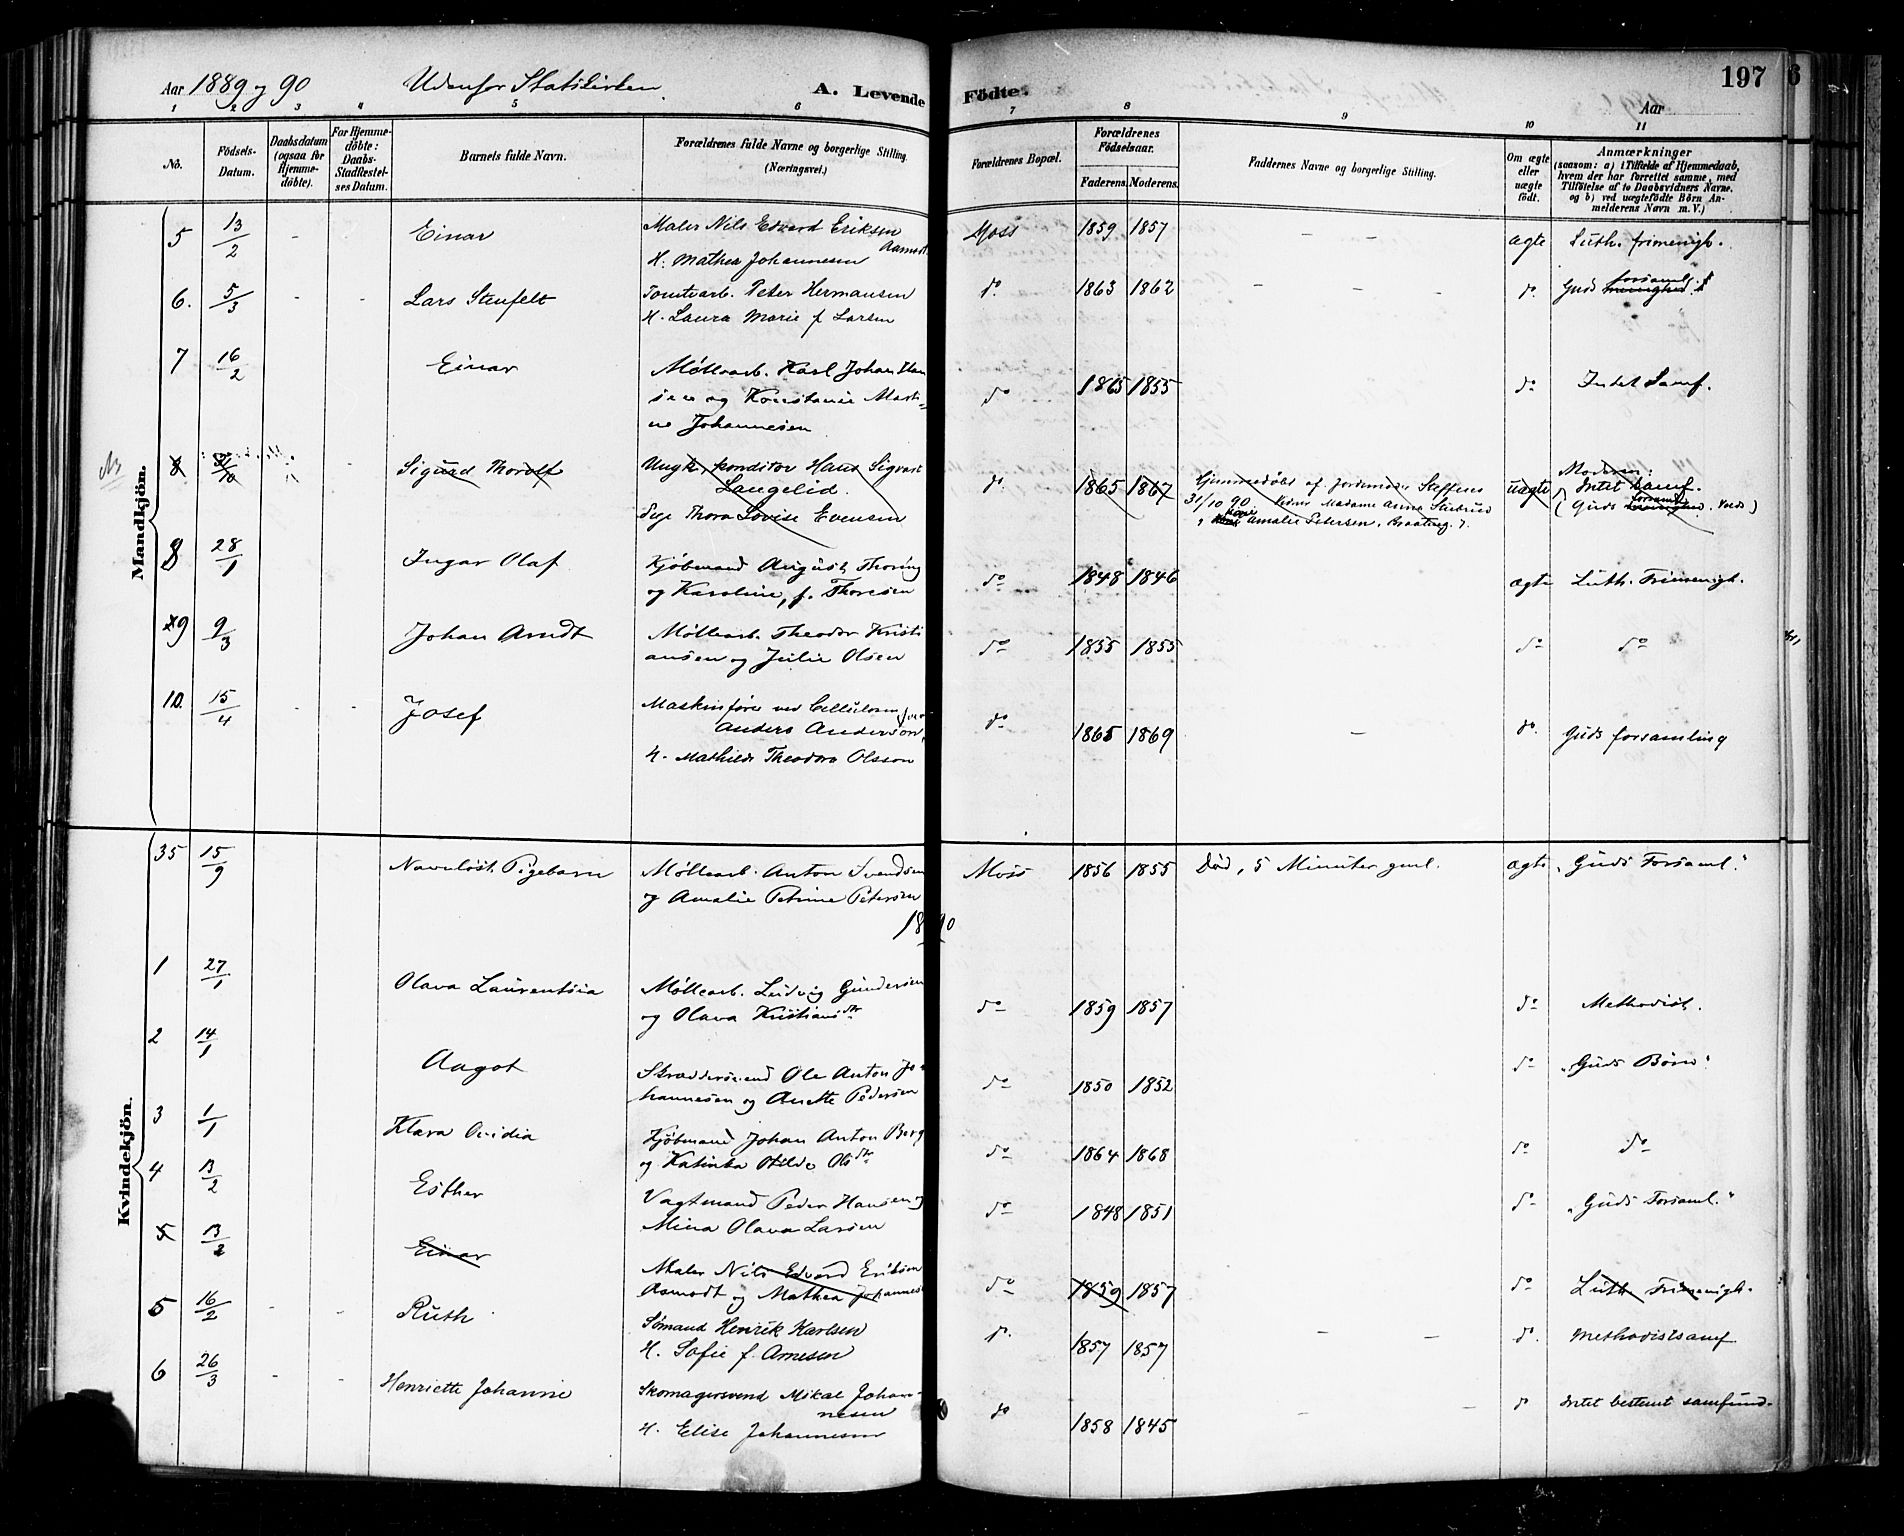 Aar 1889 og 90 Udenfor Statskirken. A. Levende Födte. 197
Aar
1 2 3 4 5 6 7 8 9 10 11
No. Födsels-Datum. Daabsdatum (ogsaa for Hjemmedöbte). For Hjemmedöbte: Daabs-Stadfæstelses Datum. Barnets fulde Navn. Forældrenes fulde Navne og borgerlige Stilling. (Næringsvei.) Forældrenes Bopæl. Forældrenes Födselsaar. Faderens. Moderens. Faddernes Navne og borgerlige Stilling. Om ægte eller uægte födt. Anmærkninger (saasom: a) i Tilfælde af Hjemmedaab, hvem der har forrettet samme, med Tilföielse af to Daabsvidners Navne, og b) ved uægtefödte Börn Anmelderens Navn m. V.)
Mandkjön.
5 13/2 - Einar Maler Nils Edvard Eriksen Moss 1859 1857 - - ægte Luth. frimenigh.
Aamodt
H. Mathea Johannesen
6. 5/3 - - Lars Stenfelt Tomtearb. Peter Hermansen do. 1863 1862 - - - do. Guds forsaml.
H. Laura Marie f Larsen
7 16/2 Einar Møllearb. Karl Johan Han
sen og Konstanse Marti= do 1865 1855 do Intet Samf.
ne Johannesen
8 Sigurd Thorolf Ungk. konditor Hans Sigvart do. 1865 1867 Hjemmedøbt af Jordemoder Steffens uægte Moderen:
Langelid. 31/10 90 Intet Samf.
Pige Thora Lovise Evensen Amalie Petersen, Braateng. 7. (Guds forsaml.
8 28/1 Ingar Olaf Kjøbmand August Thoring do 1848 1846 ægte Luth. Frimenigh.
og Karoline, f. Thoresen
9 9/3 Johan Arndt Møllearb. Theodor Kristi do 1855 1855 do do
ansen og Julie Olsen
10. 15/4 - - Josef Maskinfører ved Cellulosen do
Anders Anderson, 1865 1869 - do. Guds forsamling
H. Mathilde Theodora Olsson
Kvindekjön.
35 15/9 Navnløst Pigebarn Møllearb. Anton Svendsen Moss 1856 1855 Død, 5 Minuter gml. ægte „Guds Forsaml."
og Amalie Petrine Petersen
1890
1 27/1 Olava Laurentsia Møllearb. Ludvig Gundersen do 1859 1857 do Methodist.
og Olava Kristiansdtr
2 14/1 Aagot Skræddersvend Ole Anton Jo do 1850 1852 do „Guds Børn"
hannesen og Anette Pedersen
3 1/1 Klara Ovidia Kjøbmand Johan Anton Berg do 1864 1868 do do
og Katinka Otilde Olsdtr
4 13/2 Esther Vagtmand Peder Hansen og do 1848 1851 do „Guds Forsaml."
Mina Olava Larsen
5 13/2 Einar Maler Nils Edvard Eriksen do 1859 1857 do Luth. Frimenigh.
Aamodt og Mathea Johannes
5 16/2 - - Ruth Sømand Henrik Karlsen do. 1857 1857 - - do. Methodistsamf
H. Sofie f. Arnesen
6 26/3 - - Henriette Johanne Skomagersvend Mikal Johan- do 1858 1845 - - do Intet bestemt samfund.
nesen
H. Elise Johannesen